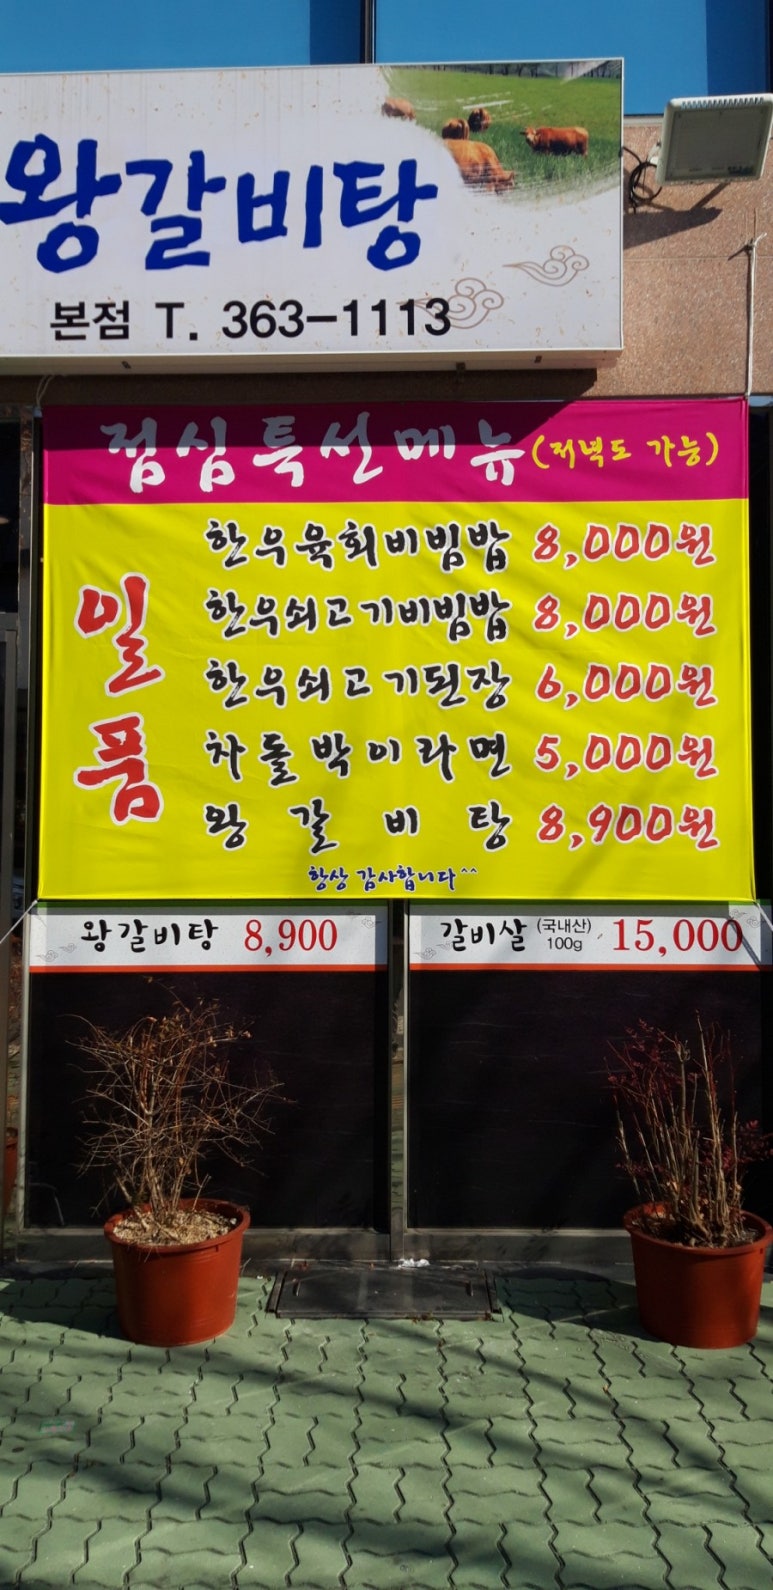 왕갈비탕
본점 T. 363-1113
점심특선메뉴(저녁도 가능)
일품
한우육회비빔밥 8,000원
한우쇠고기비빔밥 8,000원
한우쇠고기된장 6,000원
차돌박이라면 5,000원
왕갈비탕 8,900원
항상 감사합니다^^
왕갈비탕 8,900
갈비살 (국내산) 100g 15,000